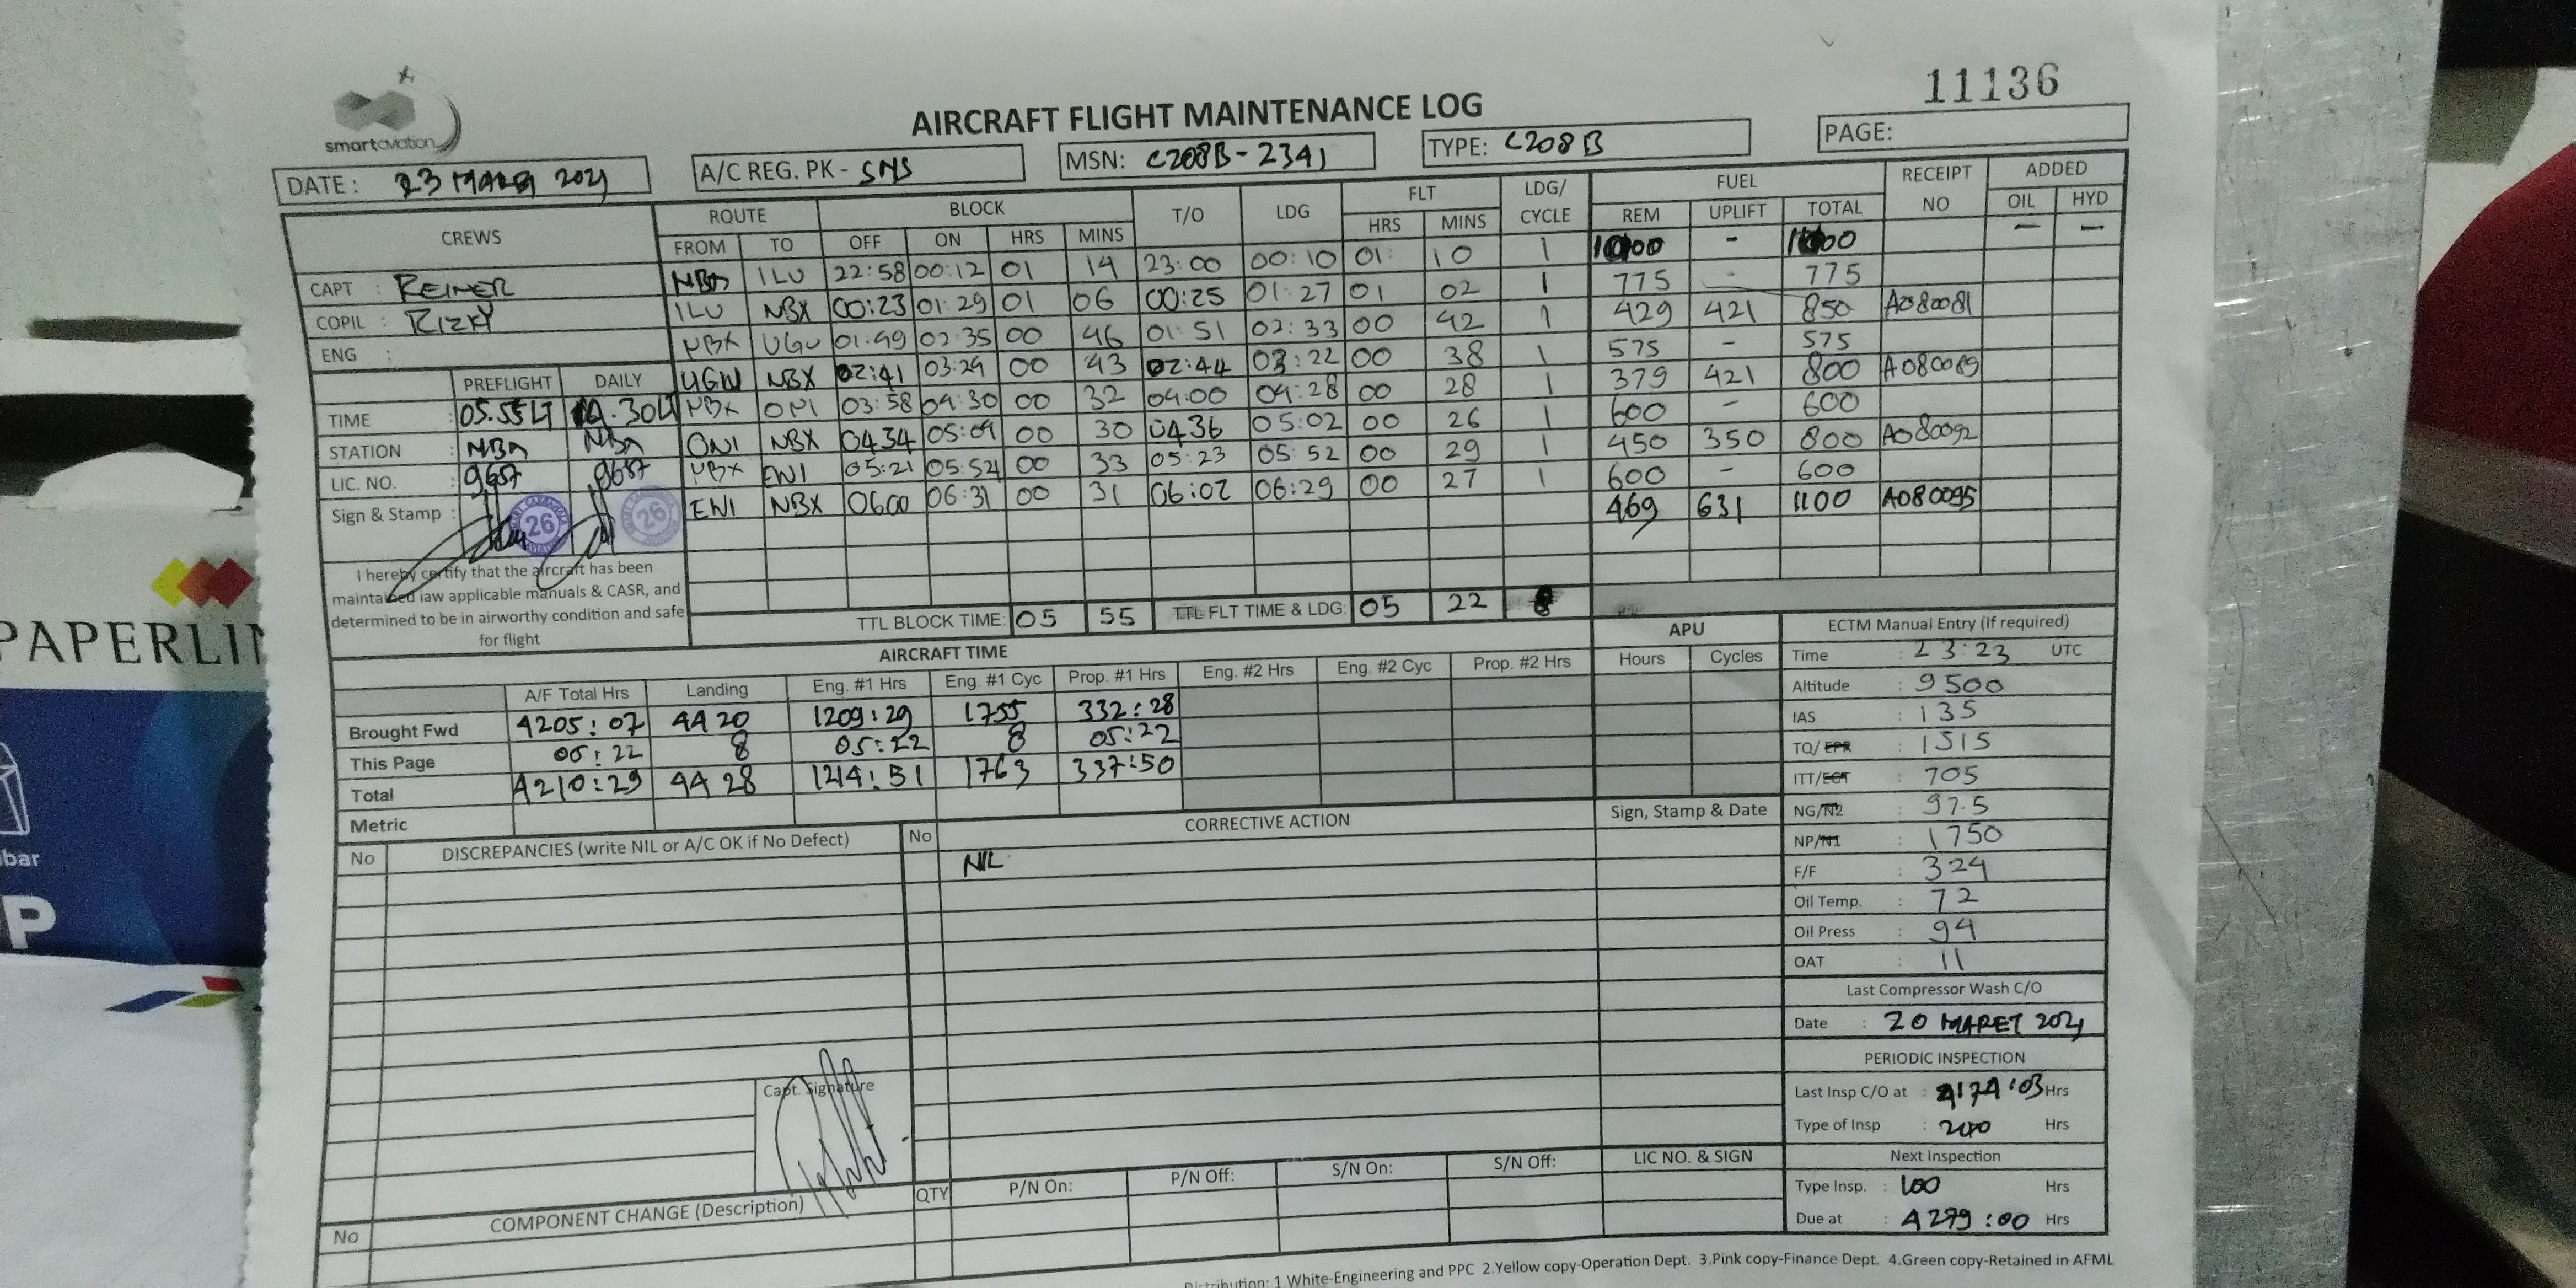 11136
smartaviation
AIRCRAFT FLIGHT MAINTENANCE LOG
DATE : 23 MARET 2021
A/C REG. PK - SNS
MSN: C208B-2341
TYPE: C208B
PAGE:
CREWS ROUTE BLOCK T/O LDG FLT LDG/CYCLE FUEL RECEIPT NO ADDED
FROM TO OFF ON HRS MINS HRS MINS REM UPLIFT TOTAL OIL HYD
1000 - 1000 - -
CAPT : REINER
COPIL : RIZKY
ENG :
NBA ILU 22:58 00:12 01 14 23:00 00:10 01: 10 1 775 - 775
ILU NBX 00:23 01:29 01 06 00:25 01:27 01 02 1 429 421 850 A080081
NBX UGU 01:49 02:35 00 46 01:51 02:33 00 42 1 575 - 575
UGU NBX 02:41 03:24 00 43 02:44 03:22 00 38 1 379 421 800 A080089
NBX ONI 03:58 04:30 00 32 04:00 04:28 00 28 1 600 - 600
ONI NBX 0434 05:04 00 30 0436 05:02 00 26 1 450 350 800 A080092
NBX ENI 05:21 05:54 00 33 05:23 05:52 00 29 1 600 - 600
ENI NBX 0600 06:31 00 31 06:02 06:29 00 27 1 469 631 1100 A080095
PREFLIGHT DAILY
TIME : 05.55LT .30LT
STATION : NBA NBA
LIC. NO. : 9687 9687
Sign & Stamp :
26 26
I hereby certify that the aircraft has been
maintained iaw applicable manuals & CASR, and
determined to be in airworthy condition and safe
for flight
TTL BLOCK TIME: 05 55 TTL FLT TIME & LDG: 05 22 8
AIRCRAFT TIME APU
A/F Total Hrs Landing Eng. #1 Hrs Eng. #1 Cyc Prop. #1 Hrs Eng. #2 Hrs Eng. #2 Cyc Prop. #2 Hrs Hours Cycles
Brought Fwd 4205:07 4420 1209:29 1755 332:28
This Page 05:22 8 05:22 8 05:22
Total 4210:29 4428 1214:51 1763 337:50
Metric
No DISCREPANCIES (write NIL or A/C OK if No Defect) No CORRECTIVE ACTION Sign, Stamp & Date
NIL
Capt. Signature
ECTM Manual Entry (If required)
Time : 23:23 UTC
Altitude : 9500
IAS : 135
TQ/EPR : 1515
ITT/EGT : 705
NG/N2 : 97.5
NP/N1 : 1750
F/F : 324
Oil Temp. : 72
Oil Press : 94
OAT : 11
Last Compressor Wash C/O
Date : 20 MARET 2021
PERIODIC INSPECTION
Last Insp C/O at : 4174:03 Hrs
Type of Insp : 200 Hrs
Next Inspection
Type Insp. : 100 Hrs
Due at : 4279:00 Hrs
No COMPONENT CHANGE (Description) QTY P/N On: P/N Off: S/N On: S/N Off: LIC NO. & SIGN
Distribution: 1.White-Engineering and PPC 2.Yellow copy-Operation Dept. 3.Pink copy-Finance Dept. 4.Green copy-Retained in AFML
PAPERLI
bar
P